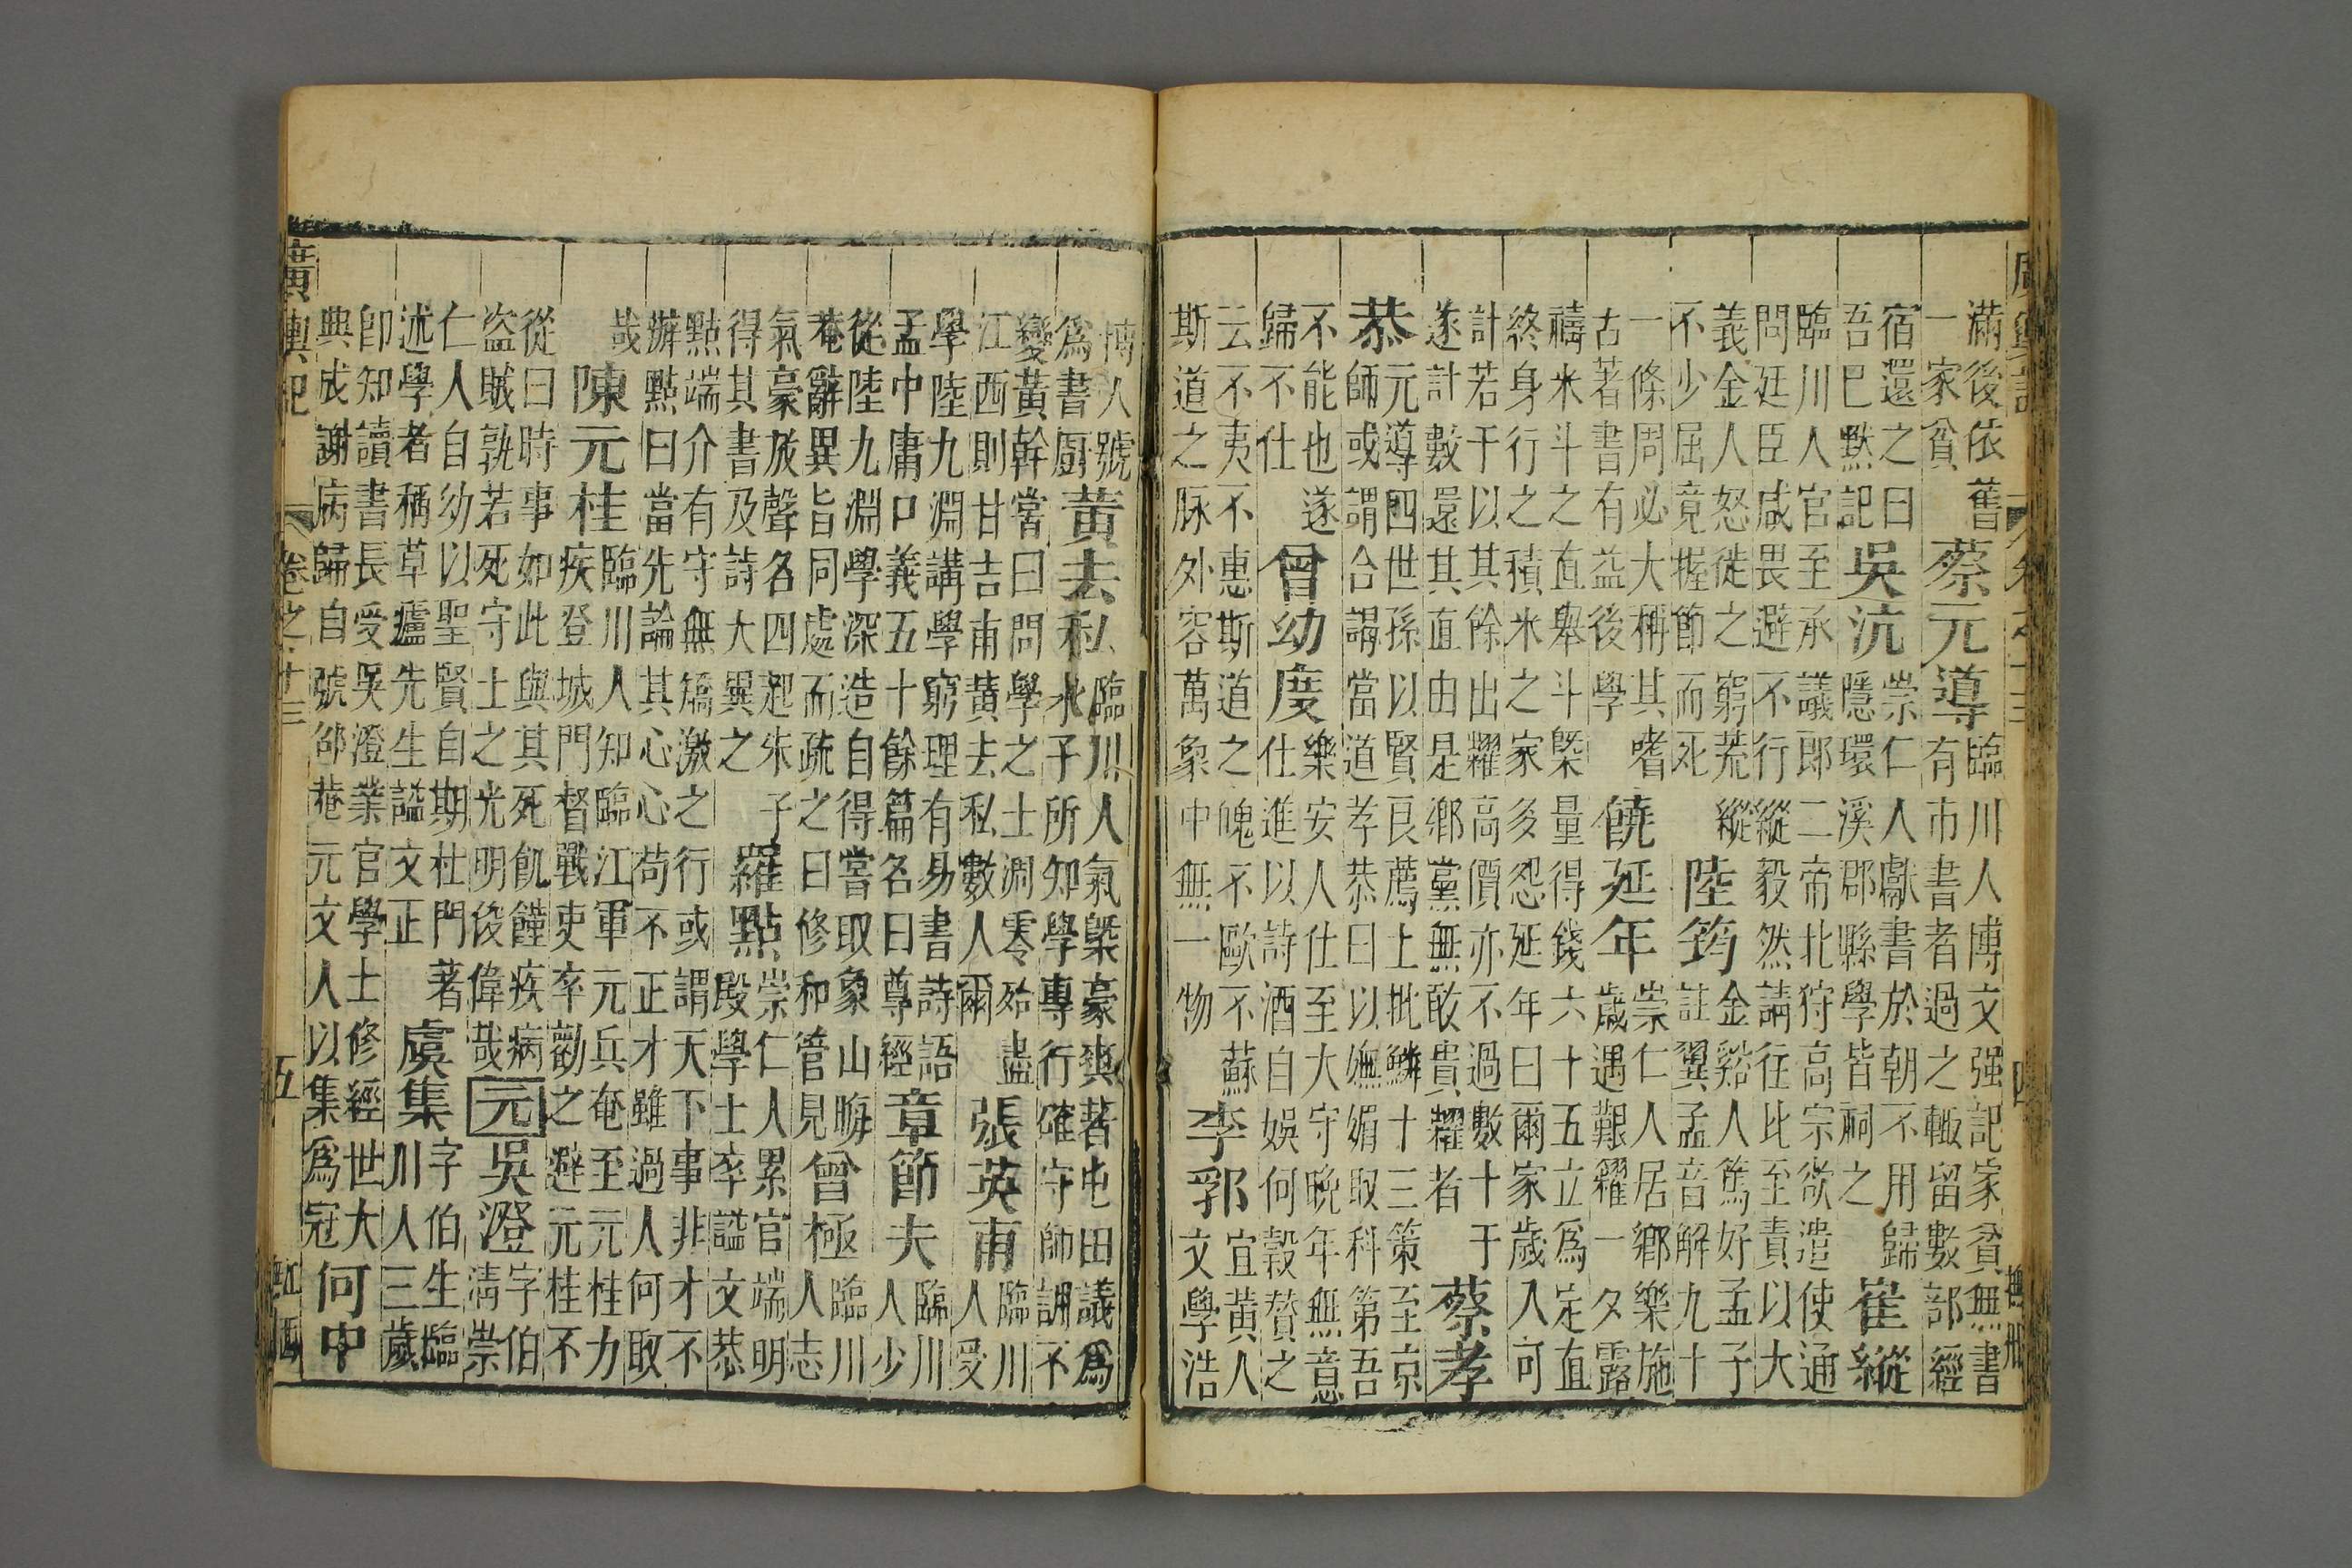 廣輿記
卷之十三
四
撫州
滿後依舊
一家貧
蔡元導
臨川人博文强記家貧無書
有市書者過之輙留數部經
宿還之曰
吾已黙記
吳沆
崇仁人獻書於朝不用歸
隱環溪郡縣學皆祠之
崔縱
臨川人官至承議郎二帝北狩高宗欲遣使通
問廷臣咸畏避不行縱毅然請往比至責以大
義金人怒徙之窮荒縱
不少屈竟握節而死
陸筠
金谿人篤好孟子
註翼孟音解九十
一條周必大稱其嗜
古著書有益後學
饒延年
崇仁人居鄉樂施
歲遇艱糴一夕露
禱米斗之直舉斗槩量得錢六十五立爲定直
終身行之積米之家多怨延年曰爾家歲入可
計若干以其餘出糶高價亦不過數十于
遂計數還其直由是鄉黨無敢貴糶者
蔡孝
恭
元導四世孫以賢良薦上批鱗十三策至京
師或謂合謁當道孝恭曰以嫵媚取科第吾
不能也遂
歸不仕
曾幼度
樂安人仕至大守晩年無意
仕進以詩酒自娛何穀贊之
云不夷不惠斯道之䰟不歐不蘇
斯道之脉外容萬象中無一物
李郛
宜黃人
文學浩
博人號
爲書厨
黃去私
臨川人氣槩豪爽著屯田議爲
水子所知學專行確守師訓不
變黃幹嘗曰問學之士凋零殆盡
江西則甘吉甫黃去私數人爾
張英甫
臨川
人受
學陸九淵講學窮理有易書詩語
孟中庸口義五十餘篇名曰尊經
章節夫
臨川
人少
從陸九淵學深造自得嘗取象山晦
菴辭異旨同處而疏之曰修和管見
曾極
臨川
人志
氣豪放聲名四起朱子
得其書及詩大異之
羅點
崇仁人累官端明
殿學士卒謚文恭
點端介有守無矯激之行或謂天下事非才不
澥點曰當先論其心心苟不正才雖過人何取
哉
陳元桂
臨川人知臨江軍元兵奄至元桂力
疾登城門督戰吏卒勸之避元桂不
從曰時事如此與其死飢饉疾病
盜賊孰若死守土之光明俊偉哉
元
吳澄
字伯
淸崇
仁人自幼以聖賢自期杜門著
述學者稱草廬先生謚文正
虞集
字伯生臨
川人三歲
卽知讀書長受吳澄業官學士修經世大
典成謝病歸自號邵菴元文人以集爲冠
何中
廣輿記
卷之十三
五
江西